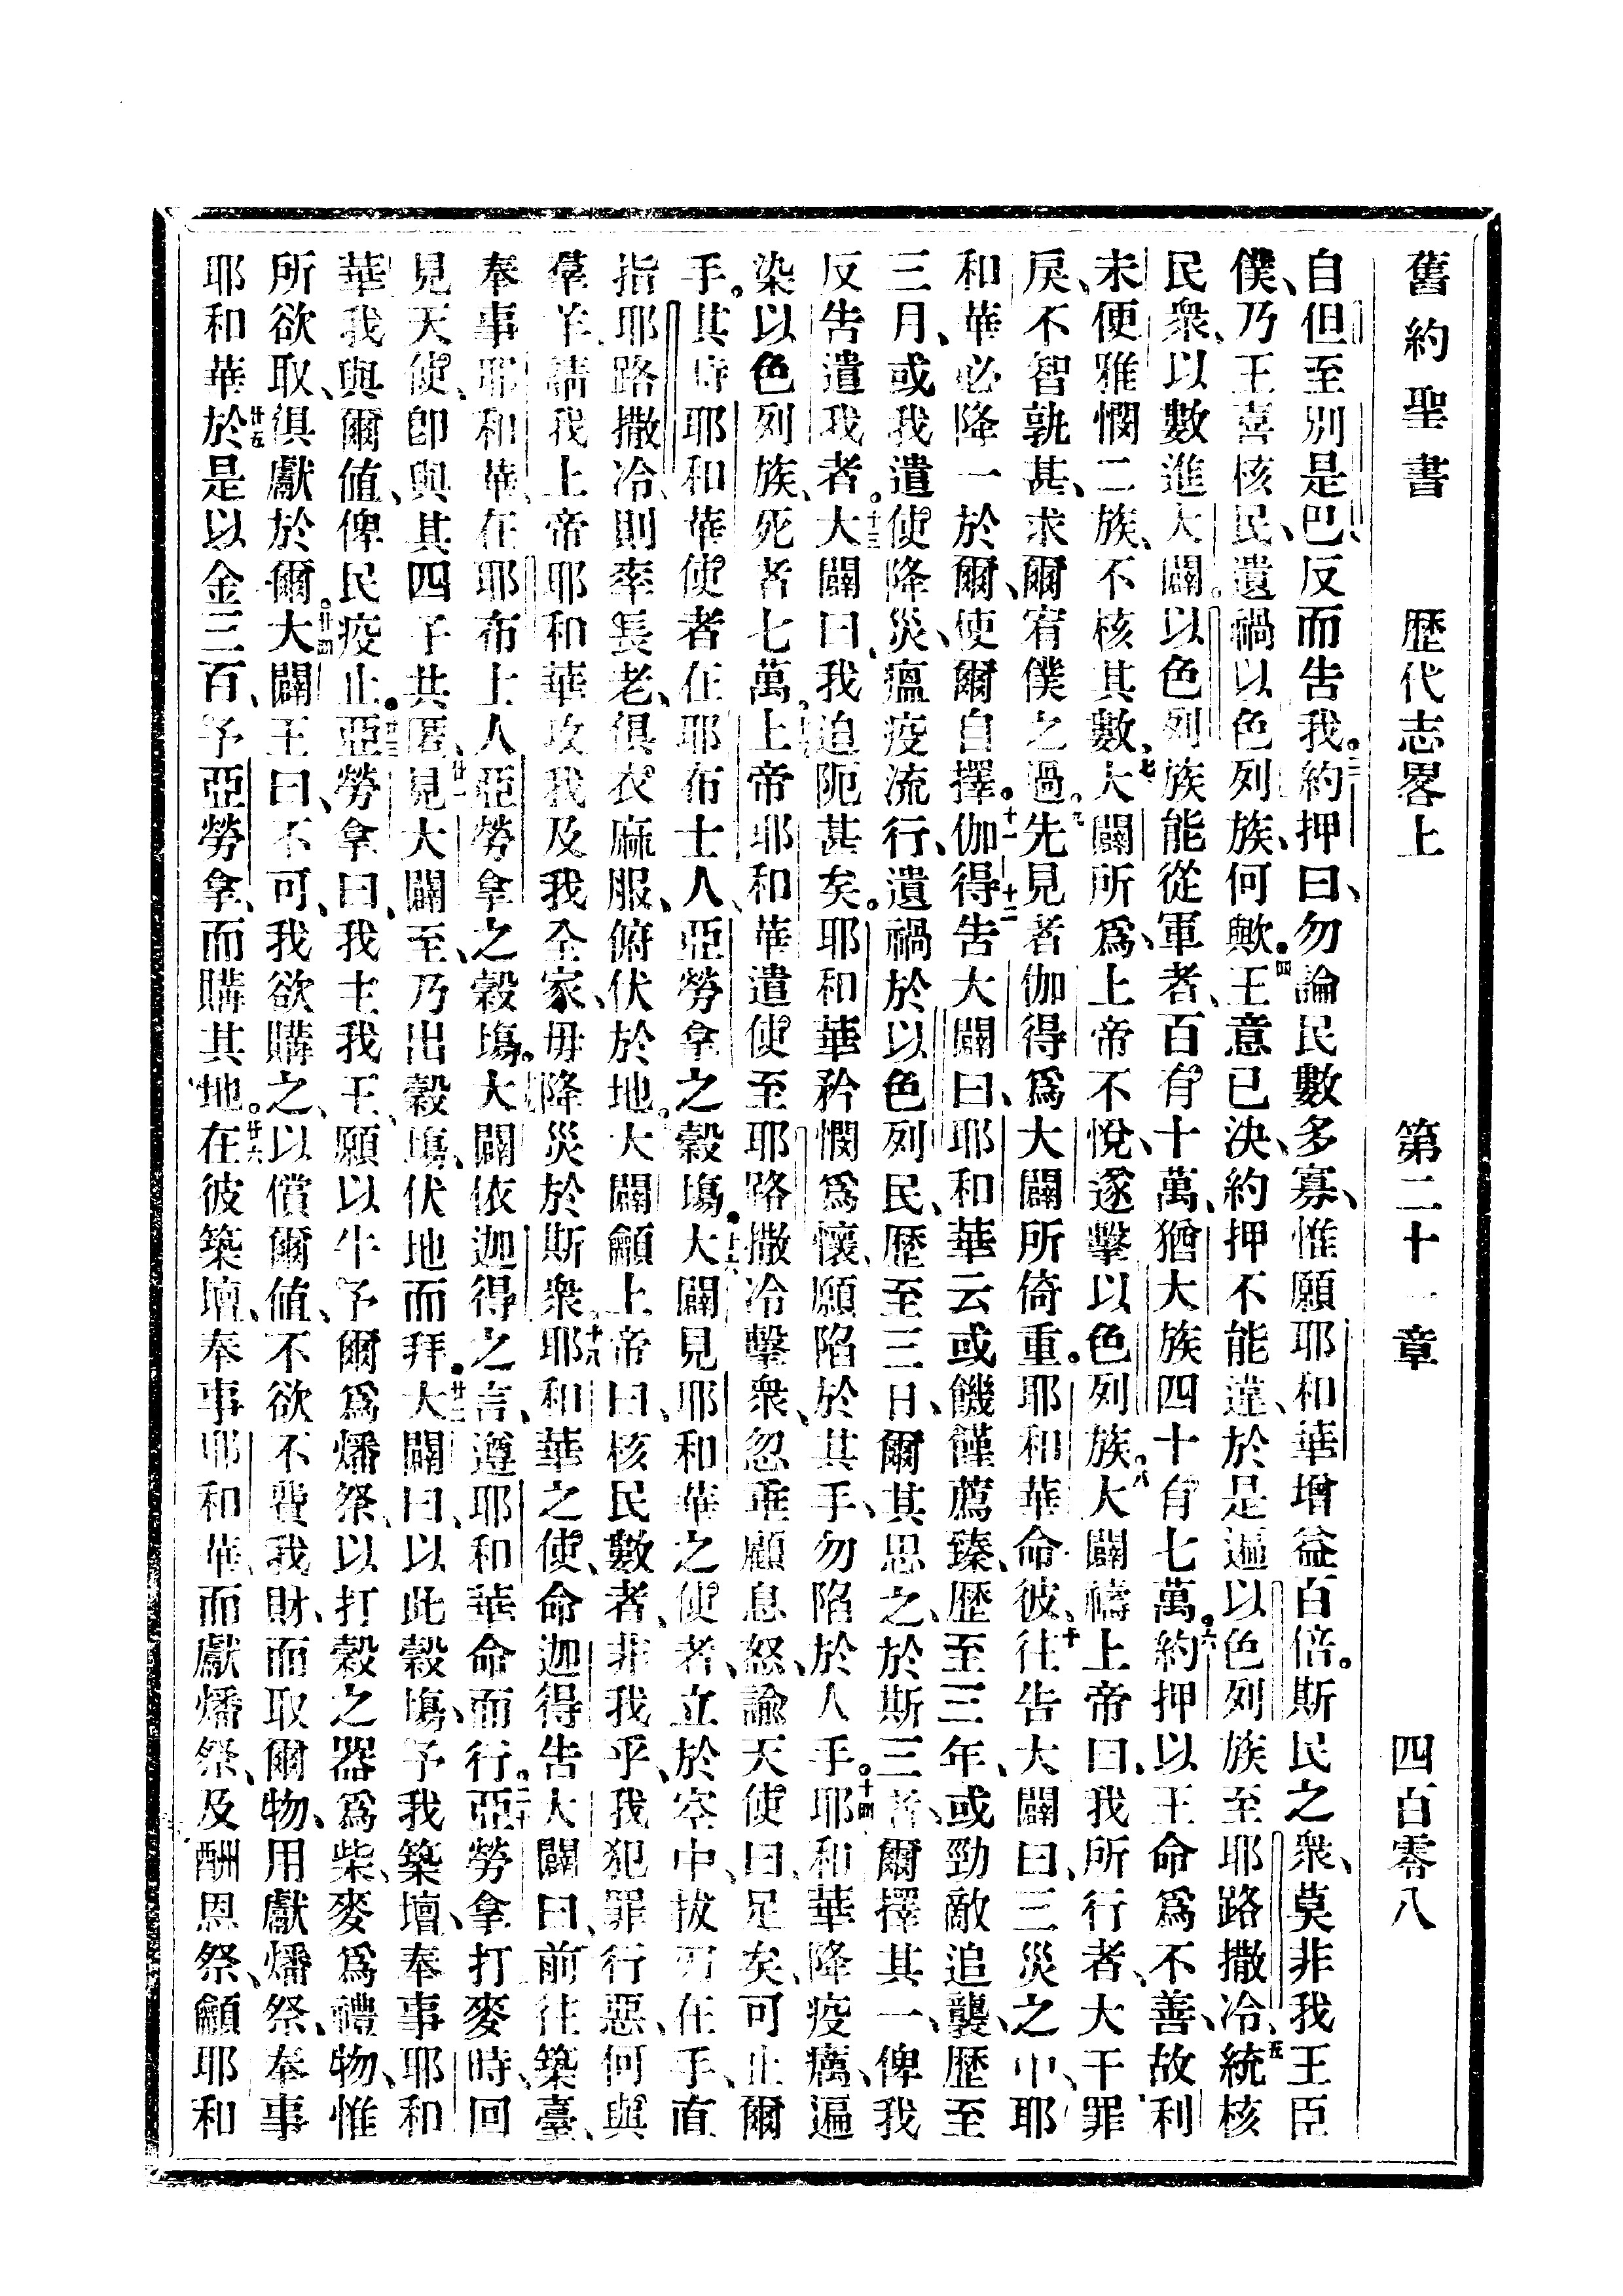 舊約聖書 歷代志畧上 第二十一章 四百零八
自但至別是巴、反而告我。三約押曰、勿論民數多寡、惟願耶和華增益百倍。斯民之衆、莫非我王臣
僕、乃王喜核民、遺禍以色列族、何歟。四王意已決、約押不能違、於是遍以色列族至耶路撒冷、五統核
民衆、以數進大闢。以色列族能從軍者、百有十萬、猶大族四十有七萬。六約押以王命爲不善、故利
未便雅憫二族、不核其數、七大闢所爲、上帝不悅、遂擊以色列族。八大闢禱上帝曰、我所行者、大干罪
戾、不智孰甚、求爾宥僕之過。九先見者伽得爲大闢所倚重。耶和華命彼、十往告大闢曰、三災之中、耶
和華必降一於爾、使爾自擇。十一伽得十二告大闢曰、耶和華云、或饑饉薦臻、歷至三年、或勁敵追襲、歷至
三月、或我遣使降災、瘟疫流行、遺禍於以色列民、歷至三日、爾其思之、於斯三者、爾擇其一、俾我
反告遣我者。十三大闢曰、我迫阨甚矣。耶和華矜憫爲懷、願陷於其手、勿陷於人手。十四耶和華降疫癘、遍
染以色列族、死者七萬、上帝耶和華遣使至耶路撒冷擊衆、忽垂顧息怒、諭天使曰、足矣、可止爾
手。其時耶和華使者在耶布士人、亞勞拿之穀塲。十六大闢見耶和華之使者、立於空中、拔刃在手、直
指耶路撒冷、則率長老、俱衣麻服、俯伏於地。大闢籲上帝曰、核民數者、非我乎、我犯罪行惡、何與
羣羊、請我上帝耶和華攻我及我全家、毋降災於斯衆、十八耶和華之使、命迦得告大闢曰、前往築臺、
奉事耶和華、在耶布士人亞勞拿之穀塲。大闢依迦得之言、遵耶和華命而行。二十亞勞拿打麥時、回
見天使、卽與其四子共匿、廿一見大闢至、乃出穀塲、伏地而拜。廿二大闢曰、以此穀塲、予我築壇、奉事耶和
華、我與爾値、俾民疫止。廿三亞勞拿曰、我主我王、願以牛予爾爲燔祭、以打穀之器爲柴、麥爲禮物、惟
所欲取、俱獻於爾。廿四大闢王曰、不可、我欲購之、以償爾値、不欲不費我財、而取爾物、用獻燔祭、奉事
耶和華、廿五於是以金三百、予亞勞拿、而購其地。廿六在彼築壇、奉事耶和華、而獻燔祭、及酬恩祭、籲耶和